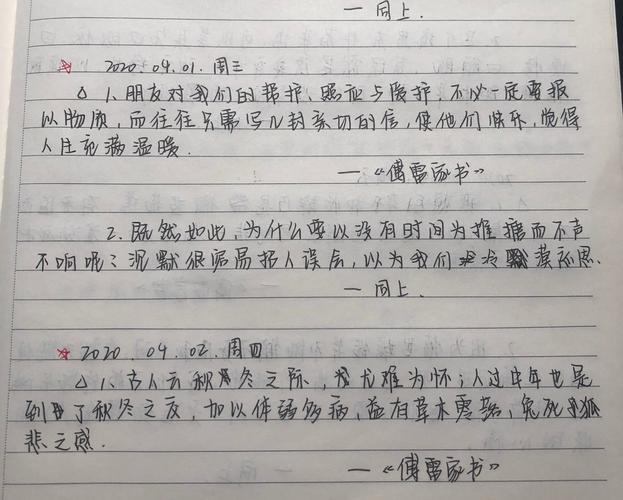 — 同上.
☆ 2020.04.01.周三
△ 1.朋友对我们的帮护、照应与爱护,不必一定要报
以物质,而往往只需写几封亲切的信,使他们快乐,觉得
人生充满温暖.
—《傅雷家书》
2.既然如此,为什么要以没有时间为推搪而不声
不响呢?沉默很容易招人误会,以为我们冷漠忘恩.
— 同上.
☆ 2020.04.02.周四
△ 1.古人云秋冬之际,尤难为怀;人过中年也是
到了秋冬之交,加以体弱多病,益有草木零落,兔死狐
悲之感.
—《傅雷家书》